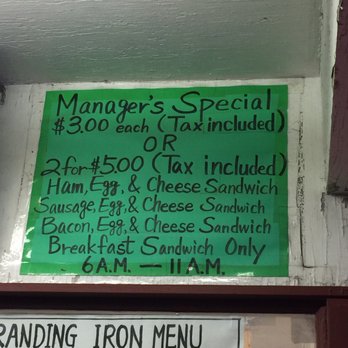 Manager's Special
$3.00 each (Tax included)
OR
2 for $5.00 (Tax included)
Ham, Egg, & Cheese Sandwich
Sausage, Egg, & Cheese Sandwich
Bacon, Egg, & Cheese Sandwich
Breakfast Sandwich Only
6 A.M. — 11 A.M.
RANDING IRON MENU